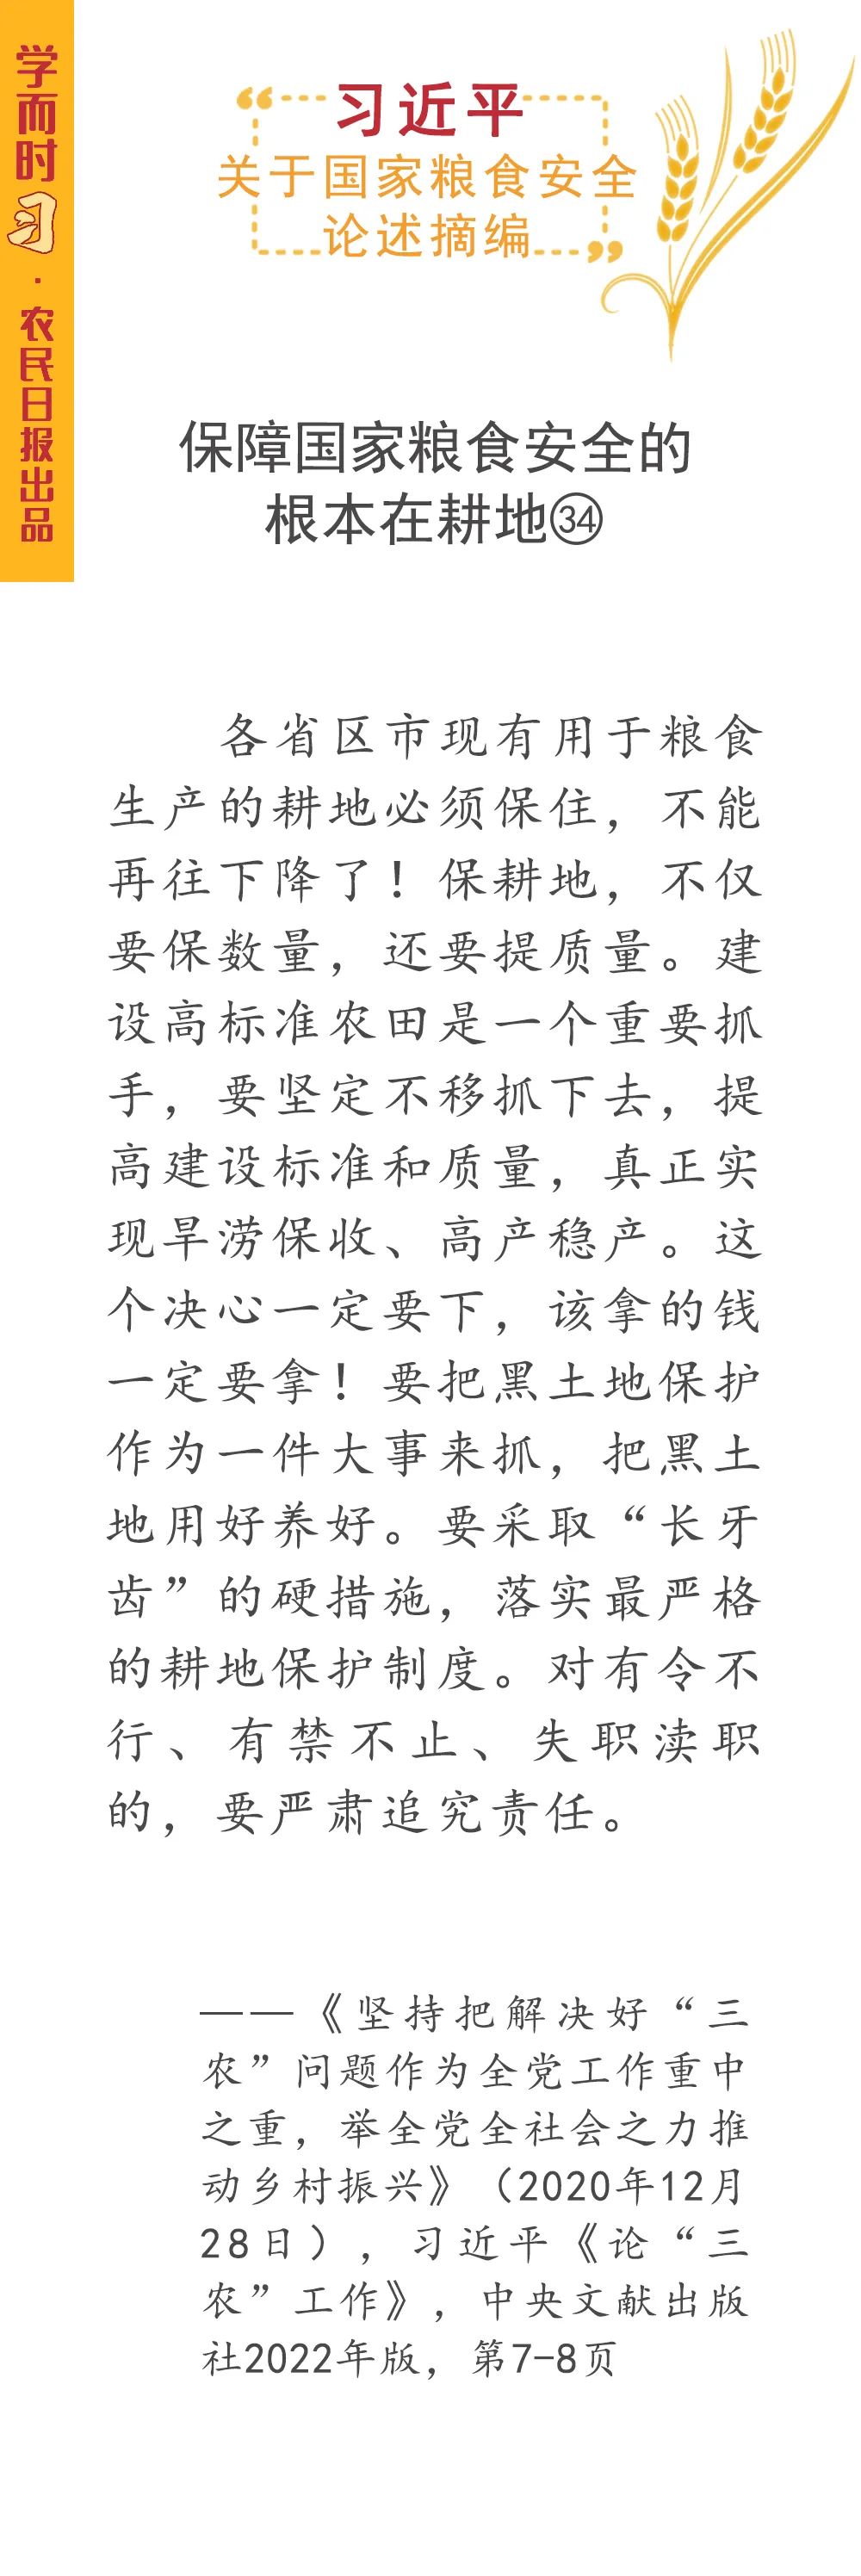 学而时习·农民日报出品
“习近平
关于国家粮食安全
论述摘编”
保障国家粮食安全的
根本在耕地㉞
各省区市现有用于粮食
生产的耕地必须保住，不能
再往下降了！保耕地，不仅
要保数量，还要提质量。建
设高标准农田是一个重要抓
手，要坚定不移抓下去，提
高建设标准和质量，真正实
现旱涝保收、高产稳产。这
个决心一定要下，该拿的钱
一定要拿！要把黑土地保护
作为一件大事来抓，把黑土
地用好养好。要采取“长牙
齿”的硬措施，落实最严格
的耕地保护制度。对有令不
行、有禁不止、失职渎职
的，要严肃追究责任。
——《坚持把解决好“三
农”问题作为全党工作重中
之重，举全党全社会之力推
动乡村振兴》（2020年12月
28日），习近平《论“三
农”工作》，中央文献出版
社2022年版，第7-8页